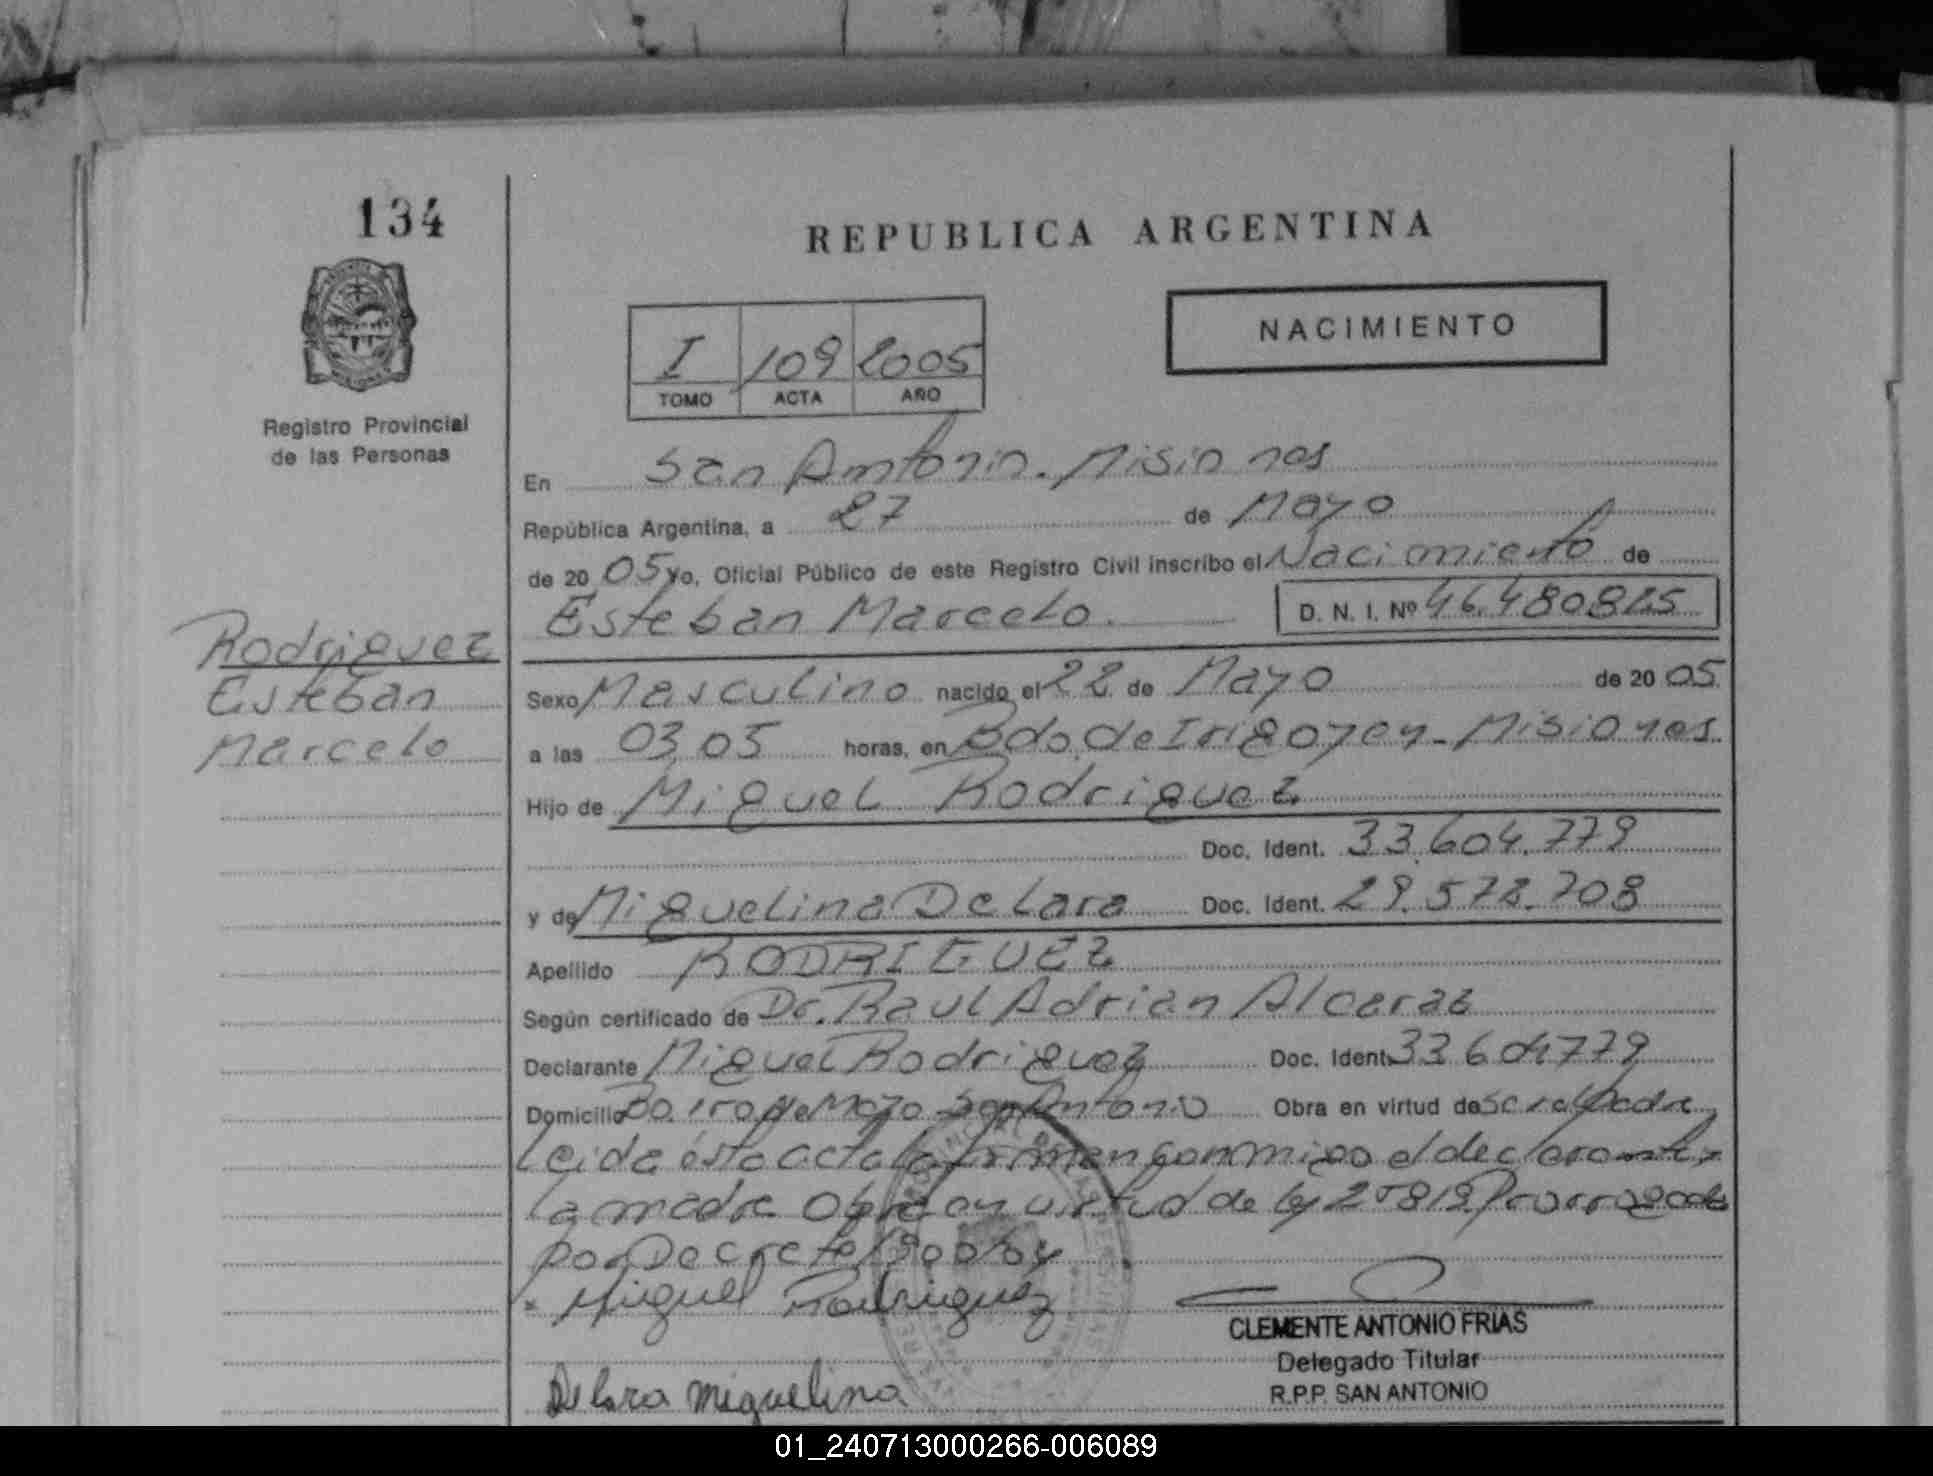 134
REPUBLICA ARGENTINA
NACIMIENTO
I 109 2005
TOMO ACTA AÑO
Registro Provincial
de las Personas
En San Antonio. Misiones
República Argentina, a 27 de Mayo
de 20 05 yo, Oficial Público de este Registro Civil inscribo el Nacimiento de
Esteban Marcelo. D. N. I. Nº 46.480825
Rodriguez
Esteban
Marcelo
Sexo Masculino nacido el 22 de Mayo de 20 05.
a las 03,05 horas, en Bdo. de Irigoyen - Misiones.
Hijo de Miguel Rodriguez
Doc. Ident. 33.604.779
y de Miguelina De Lara Doc. Ident. 29.572.708
Apellido RODRIGUEZ
Según certificado de Dr. Raul Adrian Alcaraz
Declarante Miguel Rodriguez Doc. Ident. 33604779
Domicilio San Antonio Obra en virtud de ser el Padre
Leida ésta acta la firman conmigo el declarante y
la madre Obra en virtud de ley 25819 Prorrogada
por Decreto
Miguel Rodriguez
CLEMENTE ANTONIO FRIAS
Delegado Titular
R.P.P. SAN ANTONIO
De lara Miguelina
01_240713000266-006089